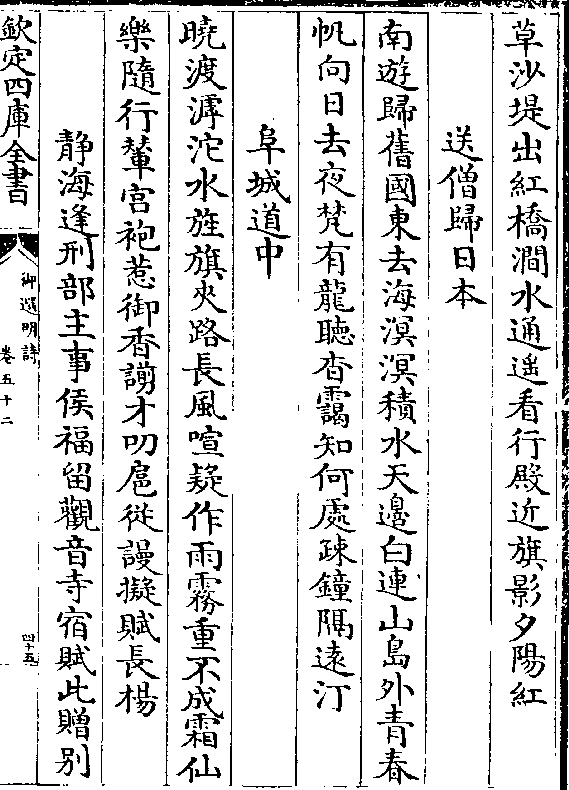 草沙堤出紅橋澗水通遥看行殿近旗影夕陽紅
送僧歸日本
南遊歸舊國東去海溟溟積水天邊白連山島外青春
帆向日去夜梵有龍聽杳靄知何處疎鐘隔遠汀
阜城道中
曉渡滹沱水旌旗夾路長風喧疑作雨霧重不成霜仙
樂隨行輦宫袍惹御香謭才叨扈從謾擬賦長楊
静海逢刑部主事侯福留觀音寺宿賦此贈别
欽定四庫全書
御選明詩
卷五十二
四十五